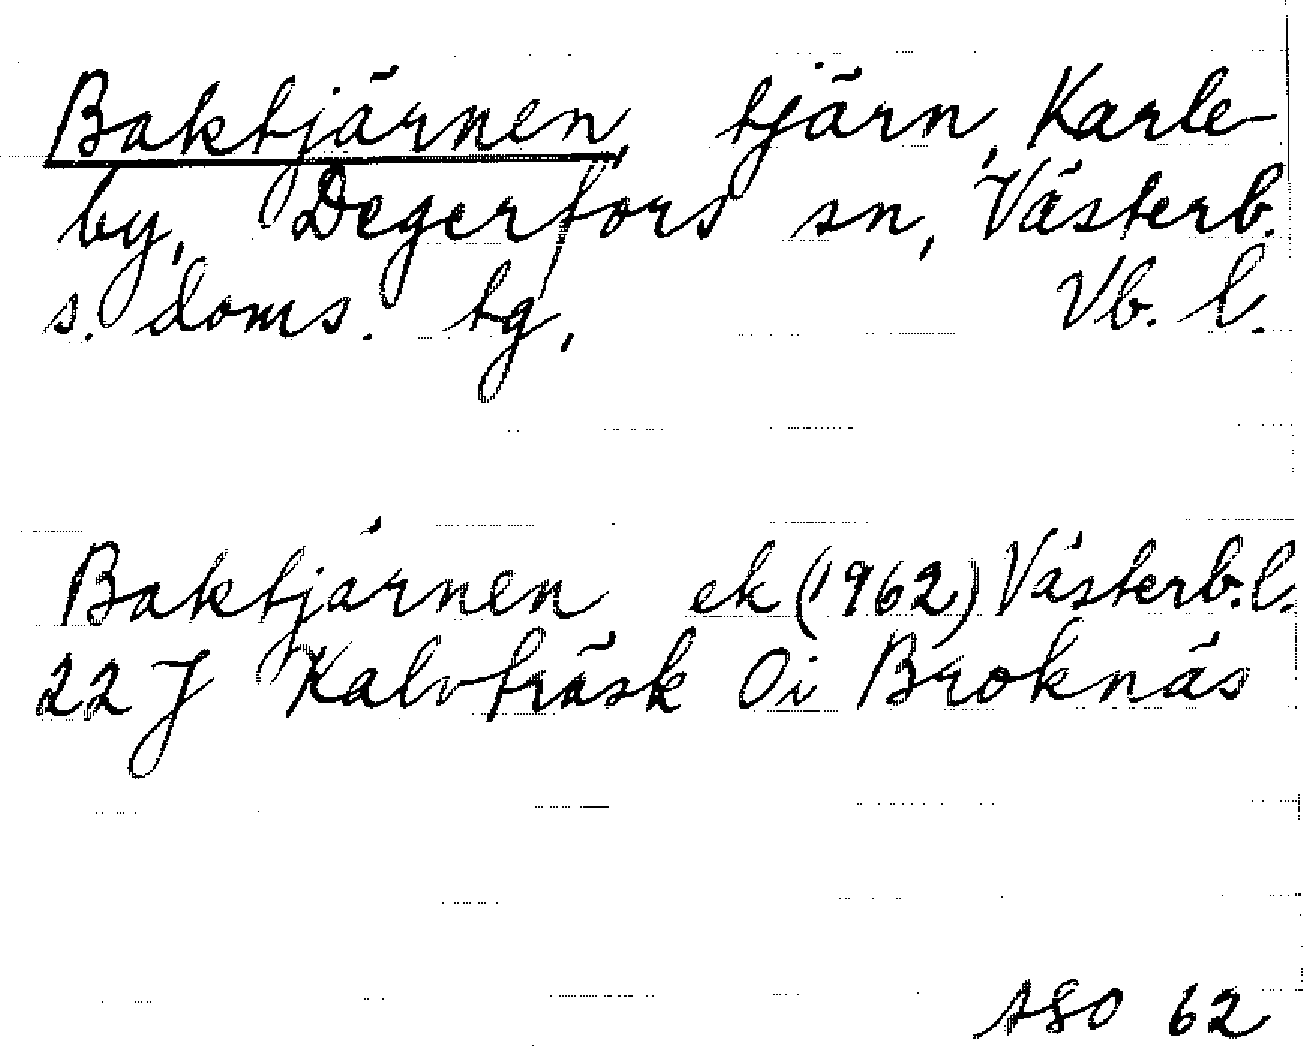 Baktjärnen, tjärn, Karle-
by, Degerfors sn, Västerb.
s. doms. tg, Vb. l.
Baktjärnen ek (1962) Västerb. l.
22 J Kalvträsk Oi Broknäs
ASO 62